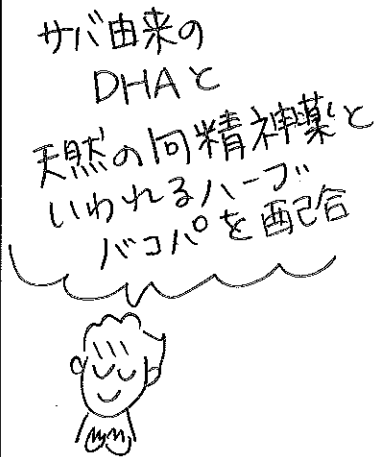 サバ由来の
DHAと
天然の向精神薬と
いわれるハーブ
バコパを配合